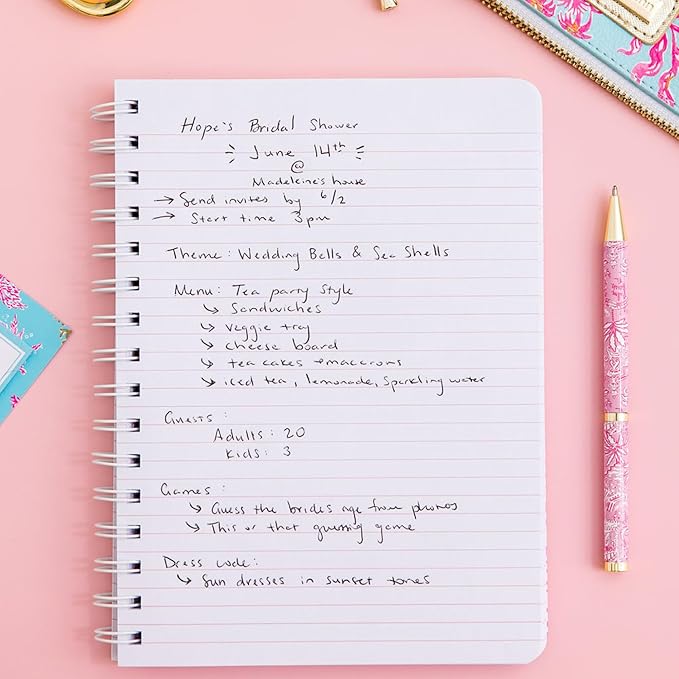 Hope's Bridal Shower
June 14th
@
Madeleine's house
→ Send invites by 6/2
→ Start time 3pm
Theme: Wedding Bells & Sea Shells
Menu: Tea party style
↳ Sandwiches
↳ veggie tray
↳ cheese board
↳ tea cakes + macarons
↳ iced tea, lemonade, sparkling water
Guests:
Adults: 20
Kids: 3
Games:
↳ Guess the brides age from photos
↳ This or that guessing game
Dress code:
↳ Sun dresses in sunset tones